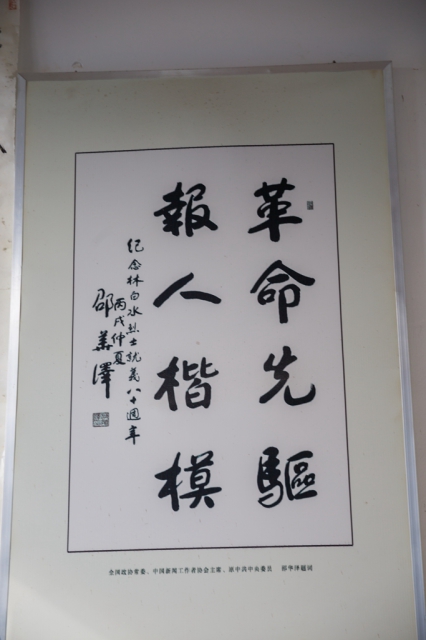 革命先驅
報人楷模
纪念林白水烈士就義八十週年
丙戌仲夏
邵華澤
全国政协常委、中国新闻工作者协会主席、原中共中央委员 邵华泽题词